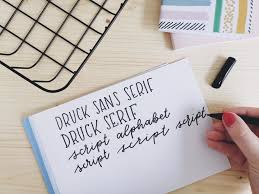 DRUCK SANS SERIF
DRUCK SERIF
script alphabet
script script script